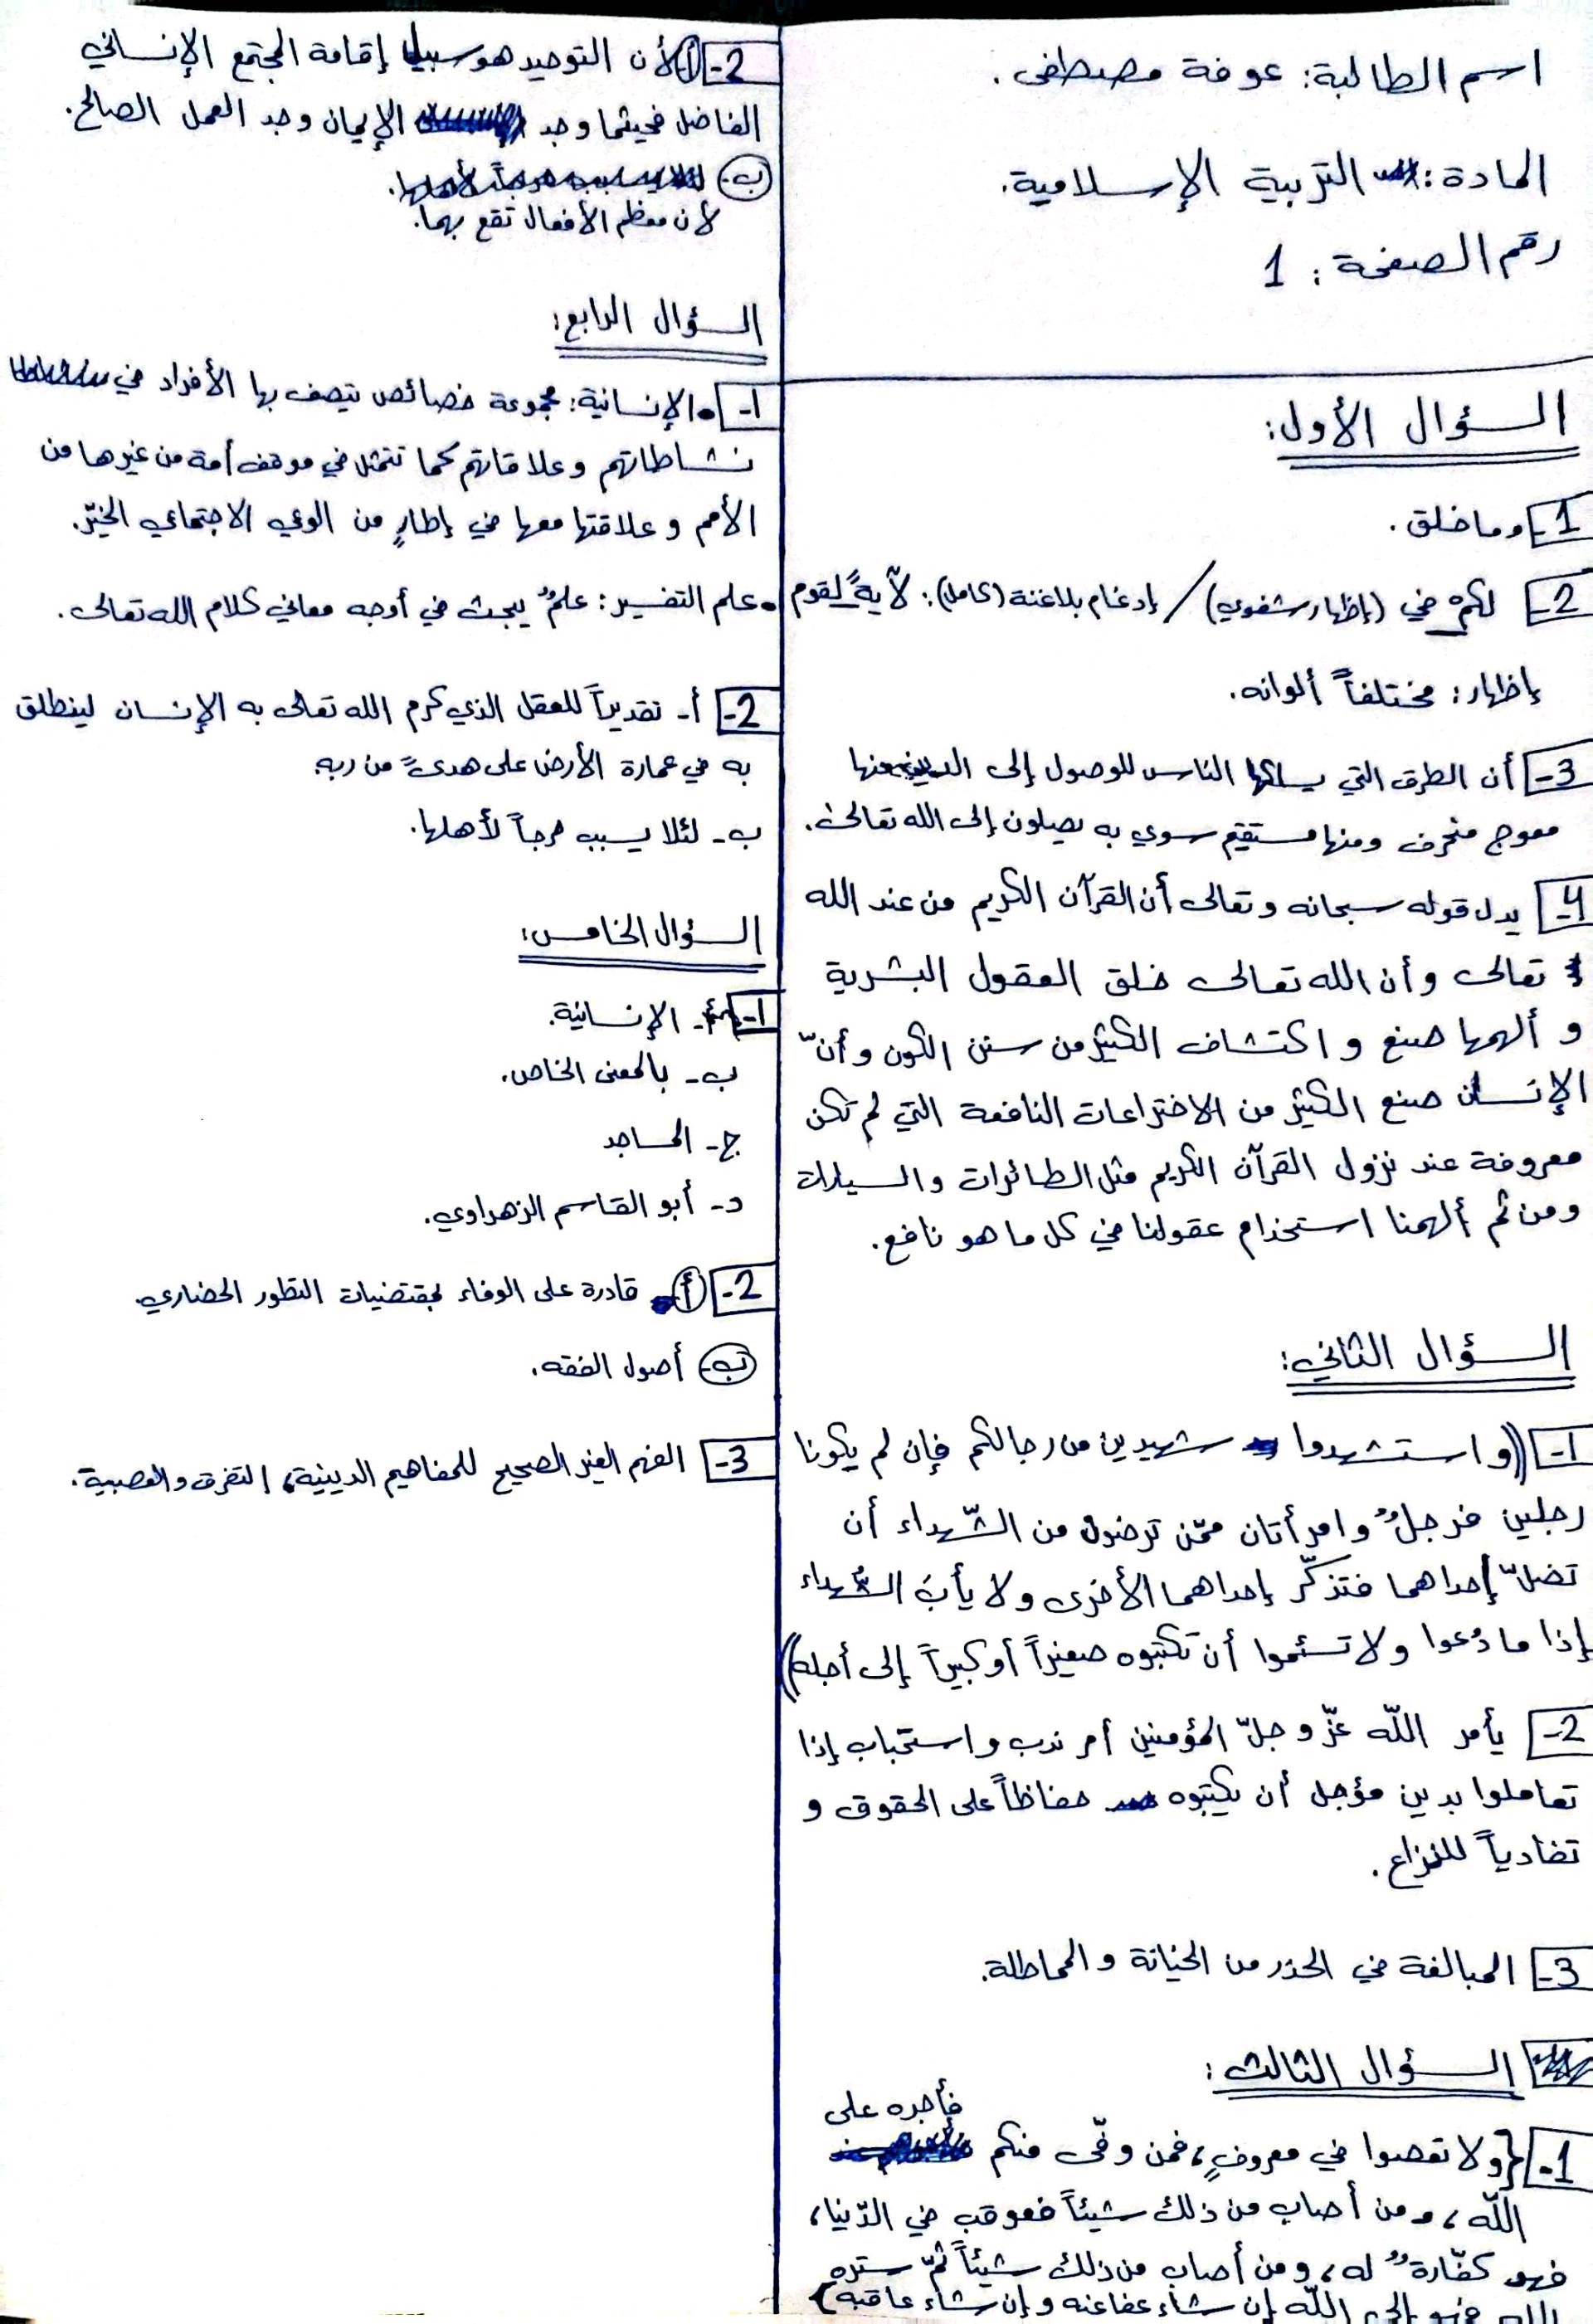 اسم الطالبة: عوفة مصطفى.
المادة: التربية الإسلامية.
رقم الصفحة: 1
السؤال الأول:
1- وما خلق.
2- لكم في (إظهار شفوي) / إدغام بلاغنة (كامل): لآيةً لقوم
إظهار: مختلفاً ألوانه.
3- أن الطرق التي يسلكها الناس للوصول إلى الدين منها
معوج منحرف ومنها مستقيم سوي به يصلون إلى الله تعالى.
4- يدل قوله سبحانه وتعالى أن القرآن الكريم من عند الله
تعالى وأن الله تعالى خلق العقول البشرية
و ألهمها صنع و اكتشاف الكثير من سنن الكون وأنّ
الإنسان صنع الكثير من الاختراعات النافعة التي لم تكن
معروفة عند نزول القرآن الكريم مثل الطائرات والسيارات
ومن ثم ألهمنا استخدام عقولنا في كل ما هو نافع.
السؤال الثاني:
1- ((واستشهدوا شهيدين من رجالكم فإن لم يكونا
رجلين فرجلٌ وامرأتان ممّن ترضون من الشّهداء أن
تضلّ إحداهما فتذكّر إحداهما الأخرى ولا يأبَ الشّهداء
إذا ما دُعوا ولا تسئموا أن تكتبوه صغيراً أو كبيراً إلى أجله))
2- يأمر اللّه عزّ وجلّ المؤمنين أمر ندب واستحباب إذا
تعاملوا بدين مؤجل أن يكتبوه حفاظاً على الحقوق و
تفادياً للنزاع.
3- المبالغة في الحذر من الخيانة و المماطلة.
السؤال الثالث:
فأجره على
1- {ولا تعصوا في معروفٍ، فمن وفّى منكم
اللّه، ومن أصاب من ذلك شيئاً فعوقب في الدّنيا،
فهو كفّارةٌ له، ومن أصاب من ذلك شيئاً ثمّ ستره
اللّه فهو إلى اللّه إن شاء عفا عنه وإن شاء عاقبه}
2- أ- لأن التوحيد هو سبيل إقامة المجتمع الإنساني
الفاضل فحيثما وجد الإيمان وجد العمل الصالح.
ب-
لأن معظم الأفعال تقع بهما.
السؤال الرابع:
1- • الإنسانية: مجموعة خصائص تتصف بها الأفراد في
نشاطاتهم وعلاقاتهم كما تتمثل في موقف أمة من غيرها من
الأمم و علاقتها معها في إطارٍ من الوعي الاجتماعي الخيّر.
• علم التفسير: علمٌ يبحث في أوجه معاني كلام الله تعالى.
2- أ- تقديراً للعقل الذي كرم الله تعالى به الإنسان لينطلق
به في عمارة الأرض على هدىً من ربه.
ب- لئلا يسبب حرجاً لأهلها.
السؤال الخامس:
1- أ- الإنسانية.
ب- بالمعنى الخاص.
ج- المساجد
د- أبو القاسم الزهراوي.
2- أ- قادرة على الوفاء بمقتضيات التطور الحضاري.
ب- أصول الفقه.
3- الفهم الغير الصحيح للمفاهيم الدينية، التفرق والعصبية.